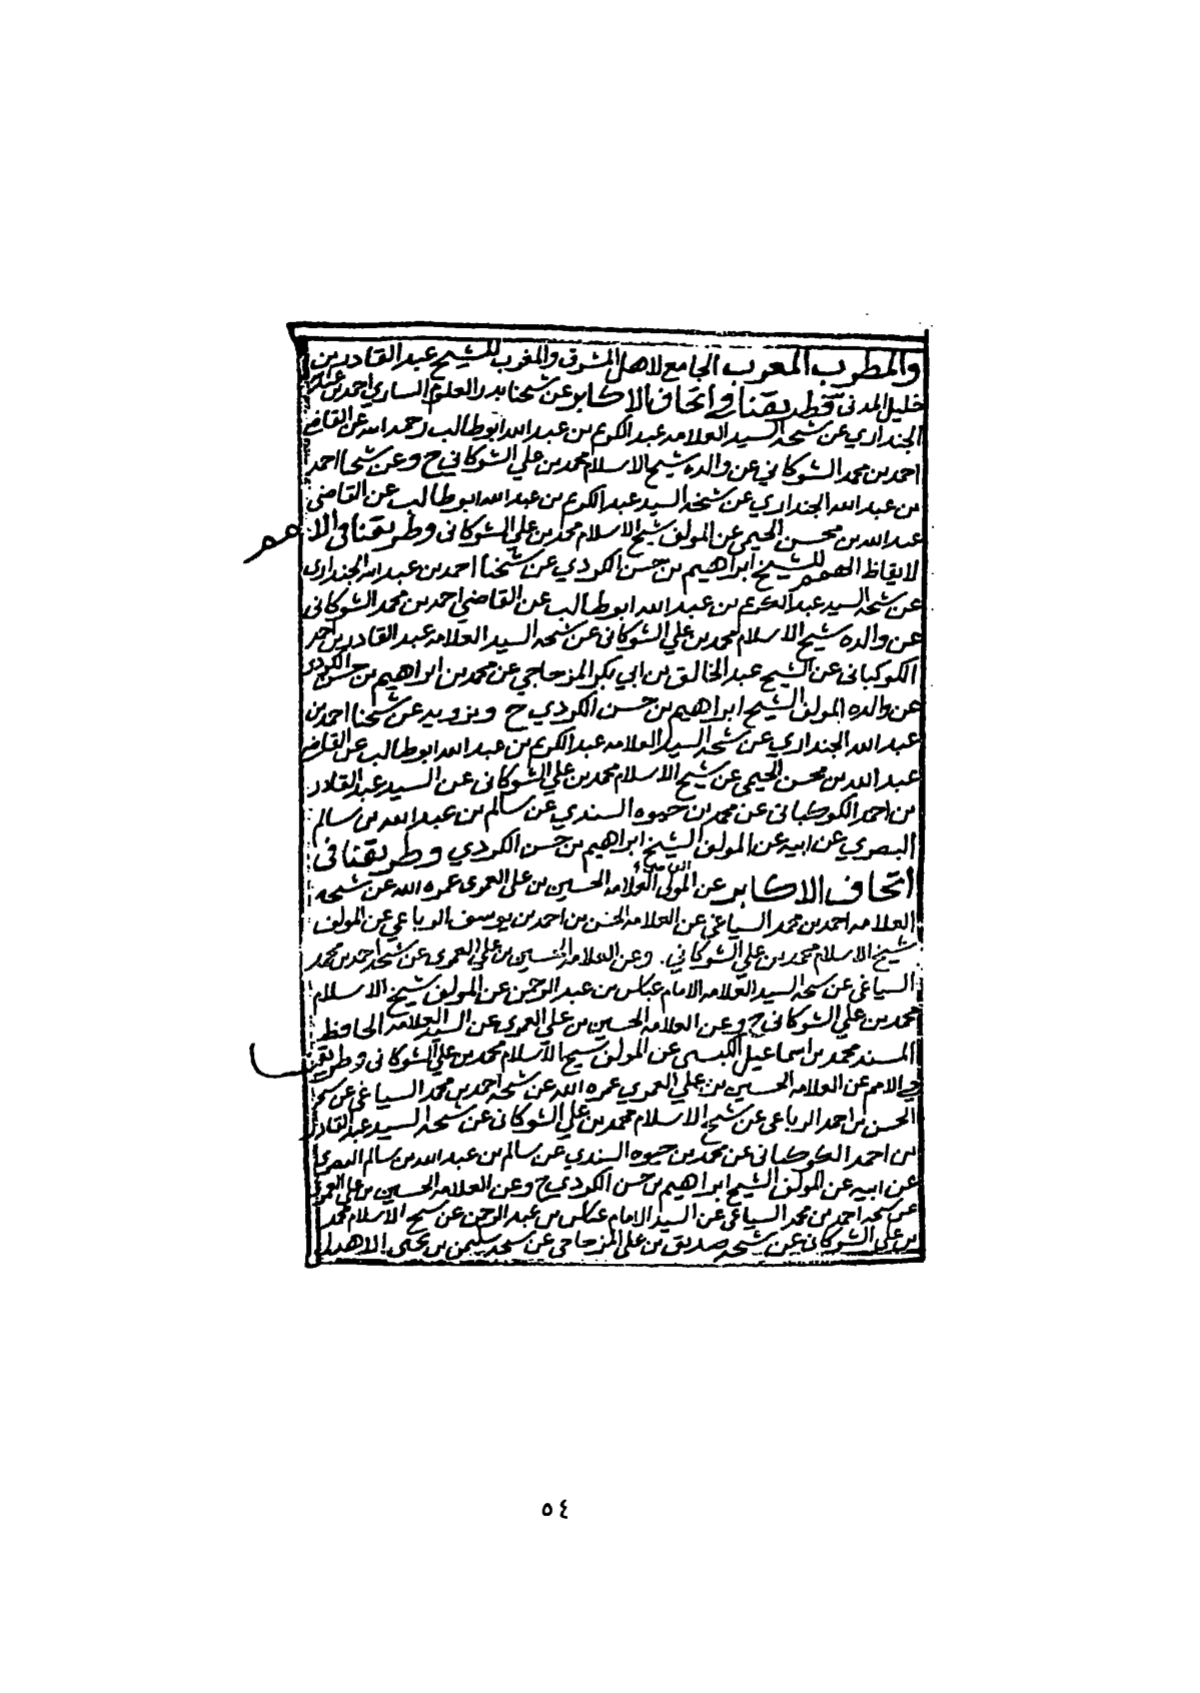 والمطرب المعرب الجامع لاهل المشرق والمغرب للشيخ عبد القادر بن
خليل المدني فطريقنا واتحاف الاكابر عن شيخنا بدر العلوم الساري احمد بن عبد الله
الجنداري عن شيخه السيد العلامه عبد الكريم بن عبد الله ابو طالب رحمه الله عن القاضي
احمد بن محمد الشوكاني عن والده شيخ الاسلام محمد بن علي الشوكاني ح وعن شيخنا احمد
بن عبد الله الجنداري عن شيخه السيد عبد الكريم بن عبد الله ابو طالب عن القاضي
عبد الله بن محسن الحيمي عن المولف شيخ الاسلام محمد بن علي الشوكاني وطريقنا في الامم
لايقاظ الهمم للشيخ ابراهيم بن حسن الكردي عن شيخنا احمد بن عبد الله الجنداري
عن شيخه السيد عبد الكريم بن عبد الله ابو طالب عن القاضي احمد بن محمد الشوكاني
عن والده شيخ الاسلام محمد بن علي الشوكاني عن شيخه السيد العلامه عبد القادر بن احمد
الكوكباني عن الشيخ عبد الخالق بن ابي بكر المزجاجي عن محمد بن ابراهيم بن حسن الكردي
عن والده المولف الشيخ ابراهيم بن حسن الكردي ح ويرويه عن شيخنا احمد بن
عبد الله الجنداري عن شيخه السيد العلامه عبد الكريم بن عبد الله ابو طالب عن القاضي
عبد الله بن محسن الحيمي عن شيخ الاسلام محمد بن علي الشوكاني عن السيد عبد القادر
بن احمد الكوكباني عن محمد بن حيوه السندي عن سالم بن عبد الله بن سالم
البصري عن ابيه عن المولف الشيخ ابراهيم بن حسن الكردي وطريقنا في
اتحاف الاكابر عن المولى العلامه الحسين بن علي العمري عمره الله عن شيخه
العلامه احمد بن محمد السياغي عن العلامه الحسن بن احمد بن يوسف الرباعي عن المولف
شيخ الاسلام محمد بن علي الشوكاني . وعن العلامه الحسين بن علي العمري عن شيخه احمد بن محمد
السياغي عن شيخه السيد العلامه الامام عباس بن عبد الرحمن عن المولف شيخ الاسلام
محمد بن علي الشوكاني ح وعن العلامه الحسين بن علي العمري عن السيد العلامه الحافظ
المسند محمد بن اسماعيل الكبسي عن المولف شيخ الاسلام محمد بن علي الشوكاني وطريقنا
في الامم عن العلامه الحسين بن علي العمري عمره الله عن شيخه احمد بن محمد السياغي عن
الحسن بن احمد الرباعي عن شيخ الاسلام محمد بن علي الشوكاني عن شيخه السيد عبد القادر
بن احمد الكوكباني عن محمد بن حيوه السندي عن سالم بن عبد الله بن سالم البصري
عن ابيه عن المولف الشيخ ابراهيم بن حسن الكردي ح وعن العلامه الحسين بن علي العمري
عن شيخه احمد بن محمد السياغي عن السيد الامام عباس بن عبد الرحمن عن شيخ الاسلام محمد
بن علي الشوكاني عن شيخه صديق بن علي المزجاجي عن شيخه سليمن بن يحيى الاهدل
٥٤